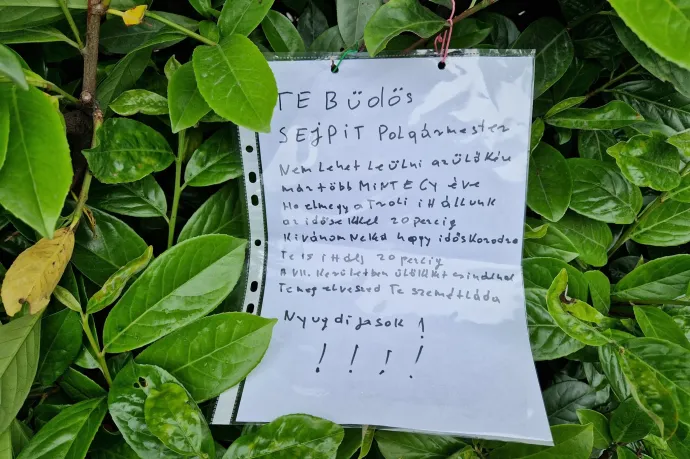 TE BüdöS
SEJPiT Polgármester
Nem Lehet Leülni az ülőkére
már több MiNT EGy éve
Ha elmegy a Troli itt állunk
az idősekkel 20 percig
Kívánom Neked hogy idős korodra
Te is itt állj 20 percig
A VII. Kerületben ülőkéket csinálnak
Te meg elveszed Te szemétláda
Nyugdíjasok !
! ! ! !